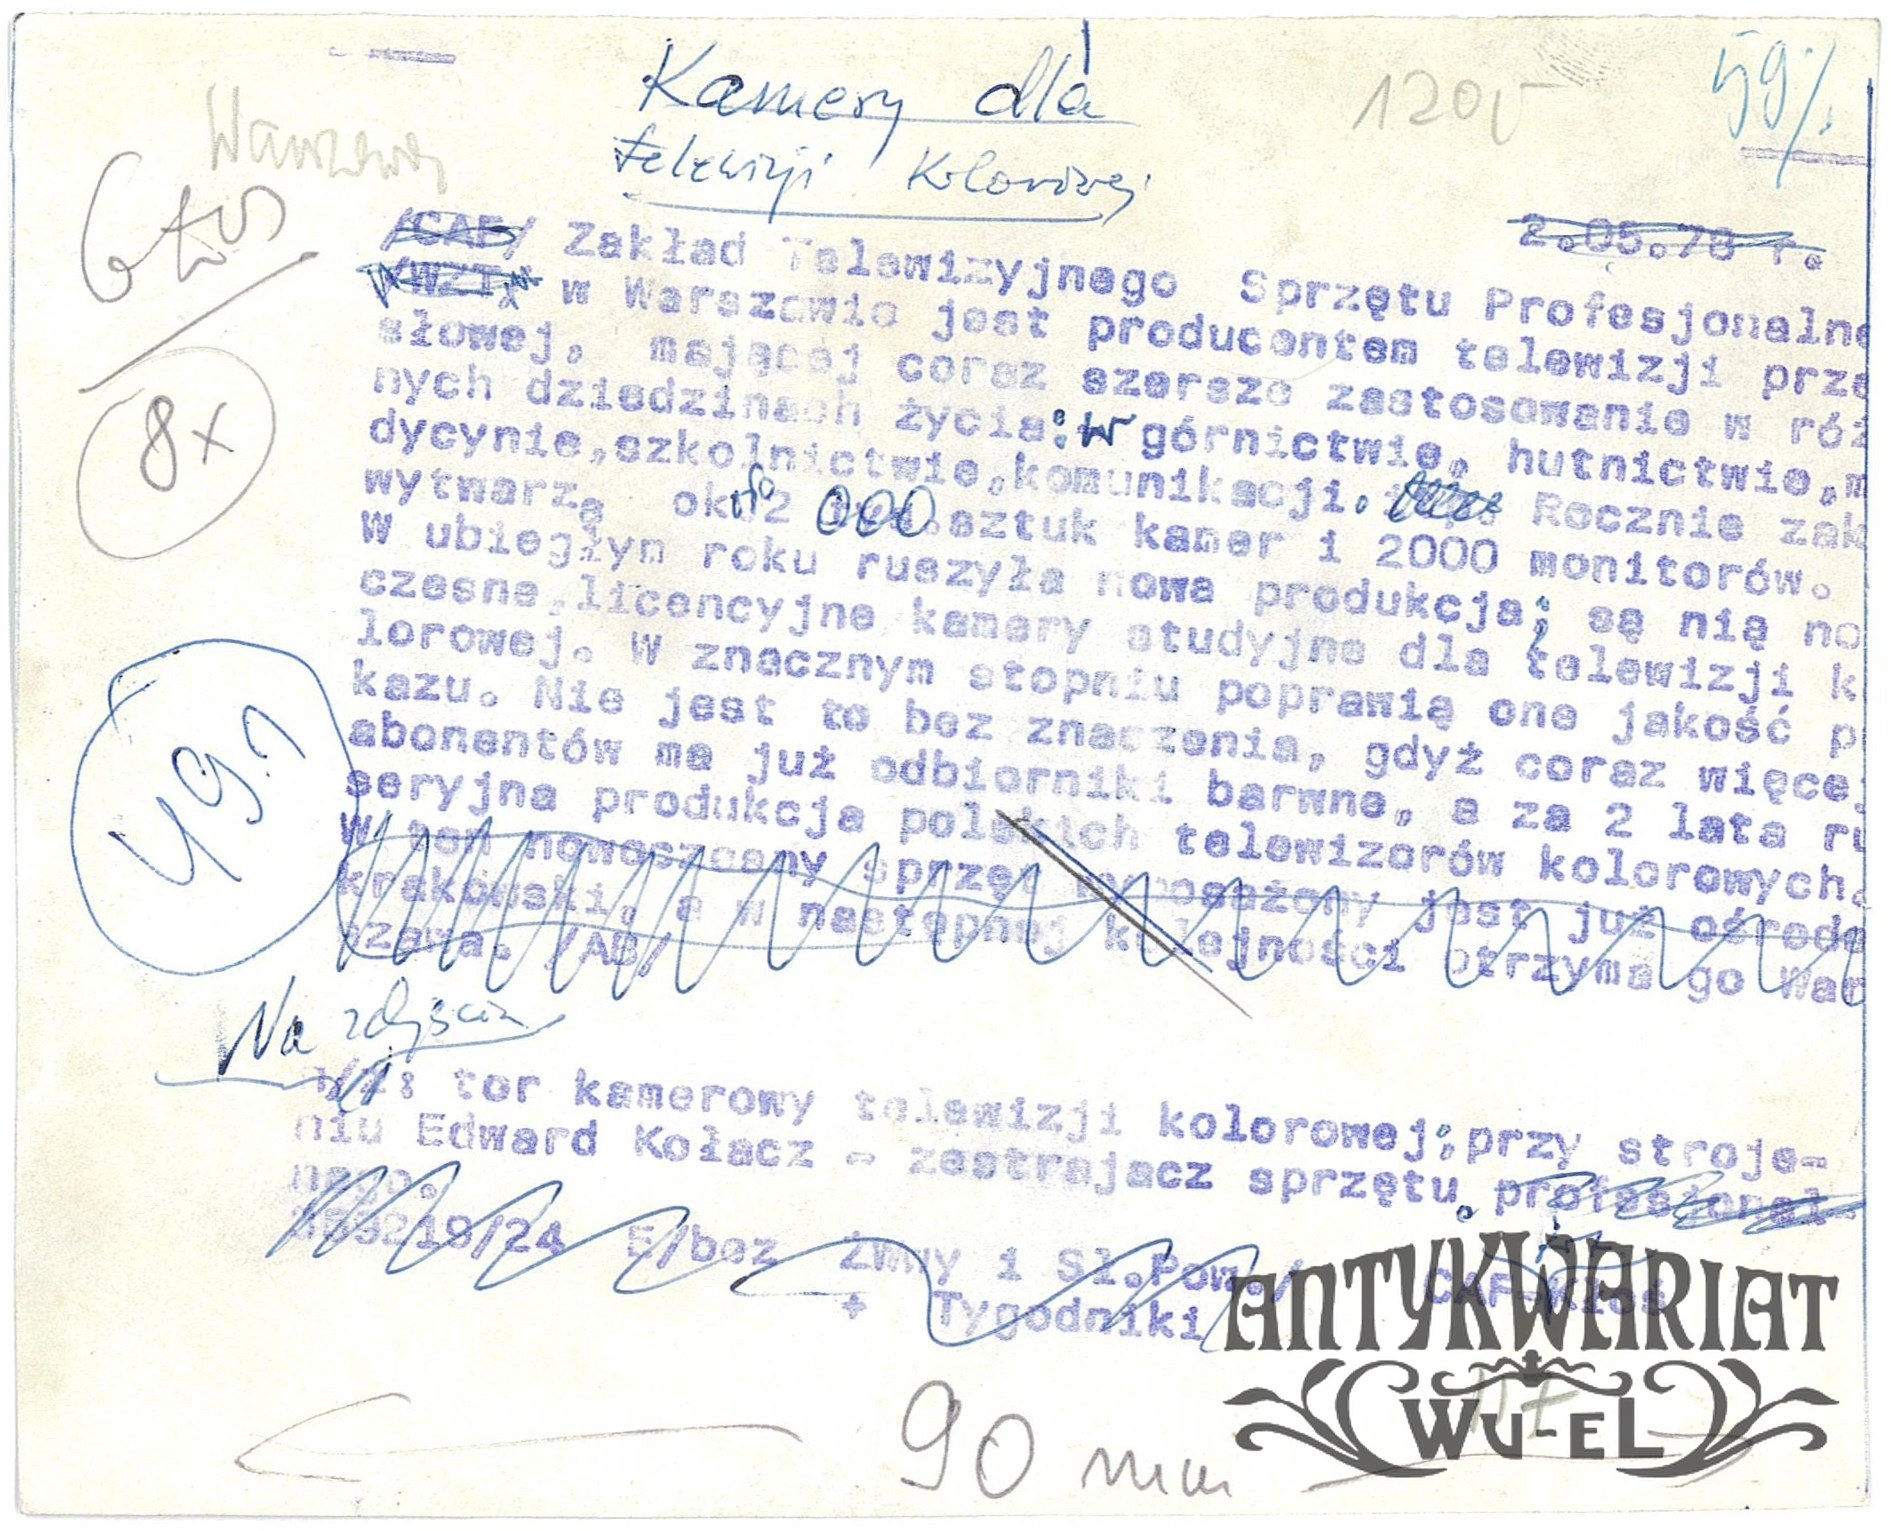 Kamery dla
telewizji kolorowej
120,-
59%
Warszawa
Głos
8x
2.05.78 r.
/CAF/ Zakład Telewizyjnego Sprzętu Profesjonalne
/WZT/ w Warszawie jest producentem telewizji prze
słowej, mającej coraz szersze zastosowanie w róż
nych dziedzinach życia: w górnictwie, hutnictwie,m
dycynie,szkolnictwie,komunikacji. Rocznie zak
wytwarza 2 000 sztuk kamer i 2000 monitorów.
W ubiegłym roku ruszyła nowa produkcja; są nią no
czesne,licencyjne kamery studyjne dla telewizji k
lorowej. W znacznym stopniu poprawią one jakość p
kazu. Nie jest to bez znaczenia, gdyż coraz więcej
abonentów ma już odbiorniki barwne, a za 2 lata ru
seryjna produkcja polskich telewizorów kolorowych.
W ten nowoczesny sprzęt wyposażony jest już ośrode
krakowski, a w następnej kolejności otrzyma go War
szawa. /AB/
Na zdjęciu
N/z: tor kamerowy telewizji kolorowej;przy stroje-
niu Edward Kołacz - zestrajacz sprzętu. profesjonal-
nego.
19/24 E/bez Żmwy i Sł.Pom./ CAF-Kłos
+ Tygodniki
90 mm
ANTYKWARIAT
WU-EL